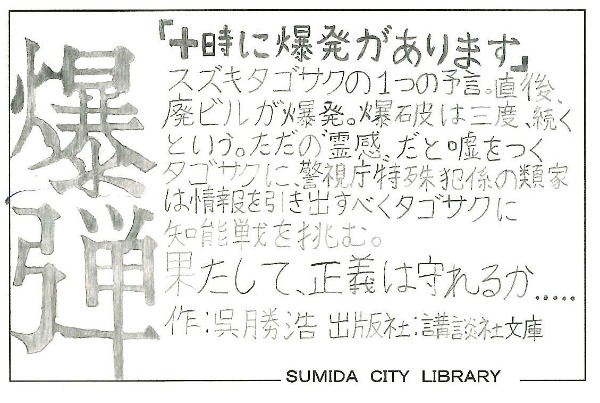 爆弾
「十時に爆発があります」
スズキタゴサクの1つの予言。直後、
廃ビルが爆発。爆破は三度、続く
という。ただの霊感、だと嘘をつく
タゴサクに、警視庁特殊犯係の類家
は情報を引き出すべくタゴサクに
知能戦を挑む。
果たして、正義は守れるか.....
作:呉勝浩 出版社:講談社文庫
SUMIDA CITY LIBRARY